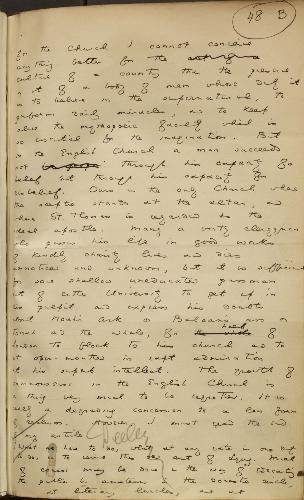 48 B
for the Church I cannot conceive
anything better for the
culture of a country than the presence
in it of a body of men whose duty it
is to believe in the supernatural, to
perform daily miracles, and to keep
alive the mythopoeic faculty which is
so essential for the imagination. But
in the English Church a man succeeds
not through his capacity for
belief but through his capacity for
disbelief. Ours is the only Church where
the sceptic stands at the altar, and
where St. Thomas is regarded as the
ideal apostle. Many a worthy clergyman
who passes his life in good works
of kindly charity lives and dies
unnoticed and unknown, but it is sufficient
for some shallow uneducated passman
out of either University to get up in
his pulpit and express his doubts
about Noah's Ark or Balaam's ass or
Jonah and the whale, for half of
London to flock to his church and to
sit open-mouthed in rapt admiration
at his superb intellect. The growth of
common sense in the English Church is
a thing very much to be regretted. It is
really a degrading concession to a low form
of realism. However, I must read the end
of my article
What we have to do, what at any rate it is our
duty to do, is to revive this old art of lying. Much
of course may be done in the way of educating
the public by amateurs in the domestic circle,
at literary lunches, and at